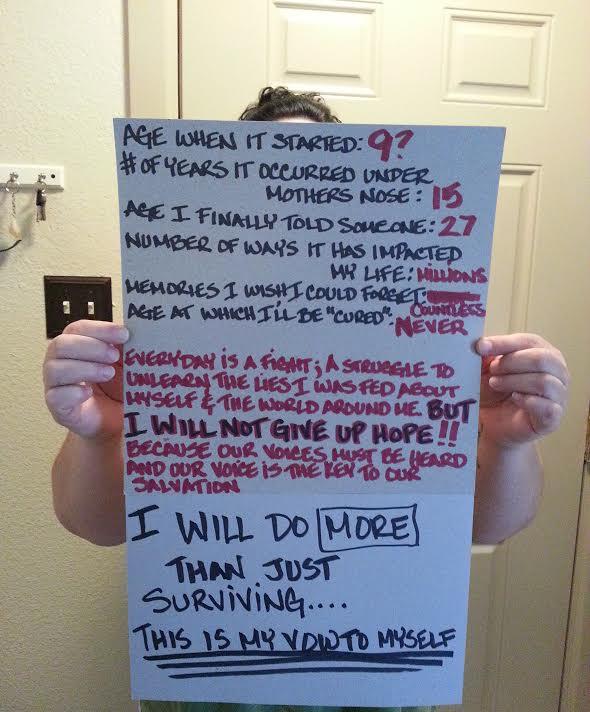 AGE WHEN IT STARTED: 9?
# OF YEARS IT OCCURRED UNDER
MOTHERS NOSE: 15
AGE I FINALLY TOLD SOMEONE: 27
NUMBER OF WAYS IT HAS IMPACTED
MY LIFE: MILLIONS
MEMORIES I WISH I COULD FORGET:
COUNTLESS
AGE AT WHICH I'LL BE "CURED":
NEVER
EVERYDAY IS A FIGHT; A STRUGGLE TO
UNLEARN THE LIES I WAS FED ABOUT
MYSELF & THE WORLD AROUND ME. BUT
I WILL NOT GIVE UP HOPE!!
BECAUSE OUR VOICES MUST BE HEARD
AND OUR VOICE IS THE KEY TO OUR
SALVATION
I WILL DO MORE
THAN JUST
SURVIVING....
THIS IS MY VOW TO MYSELF